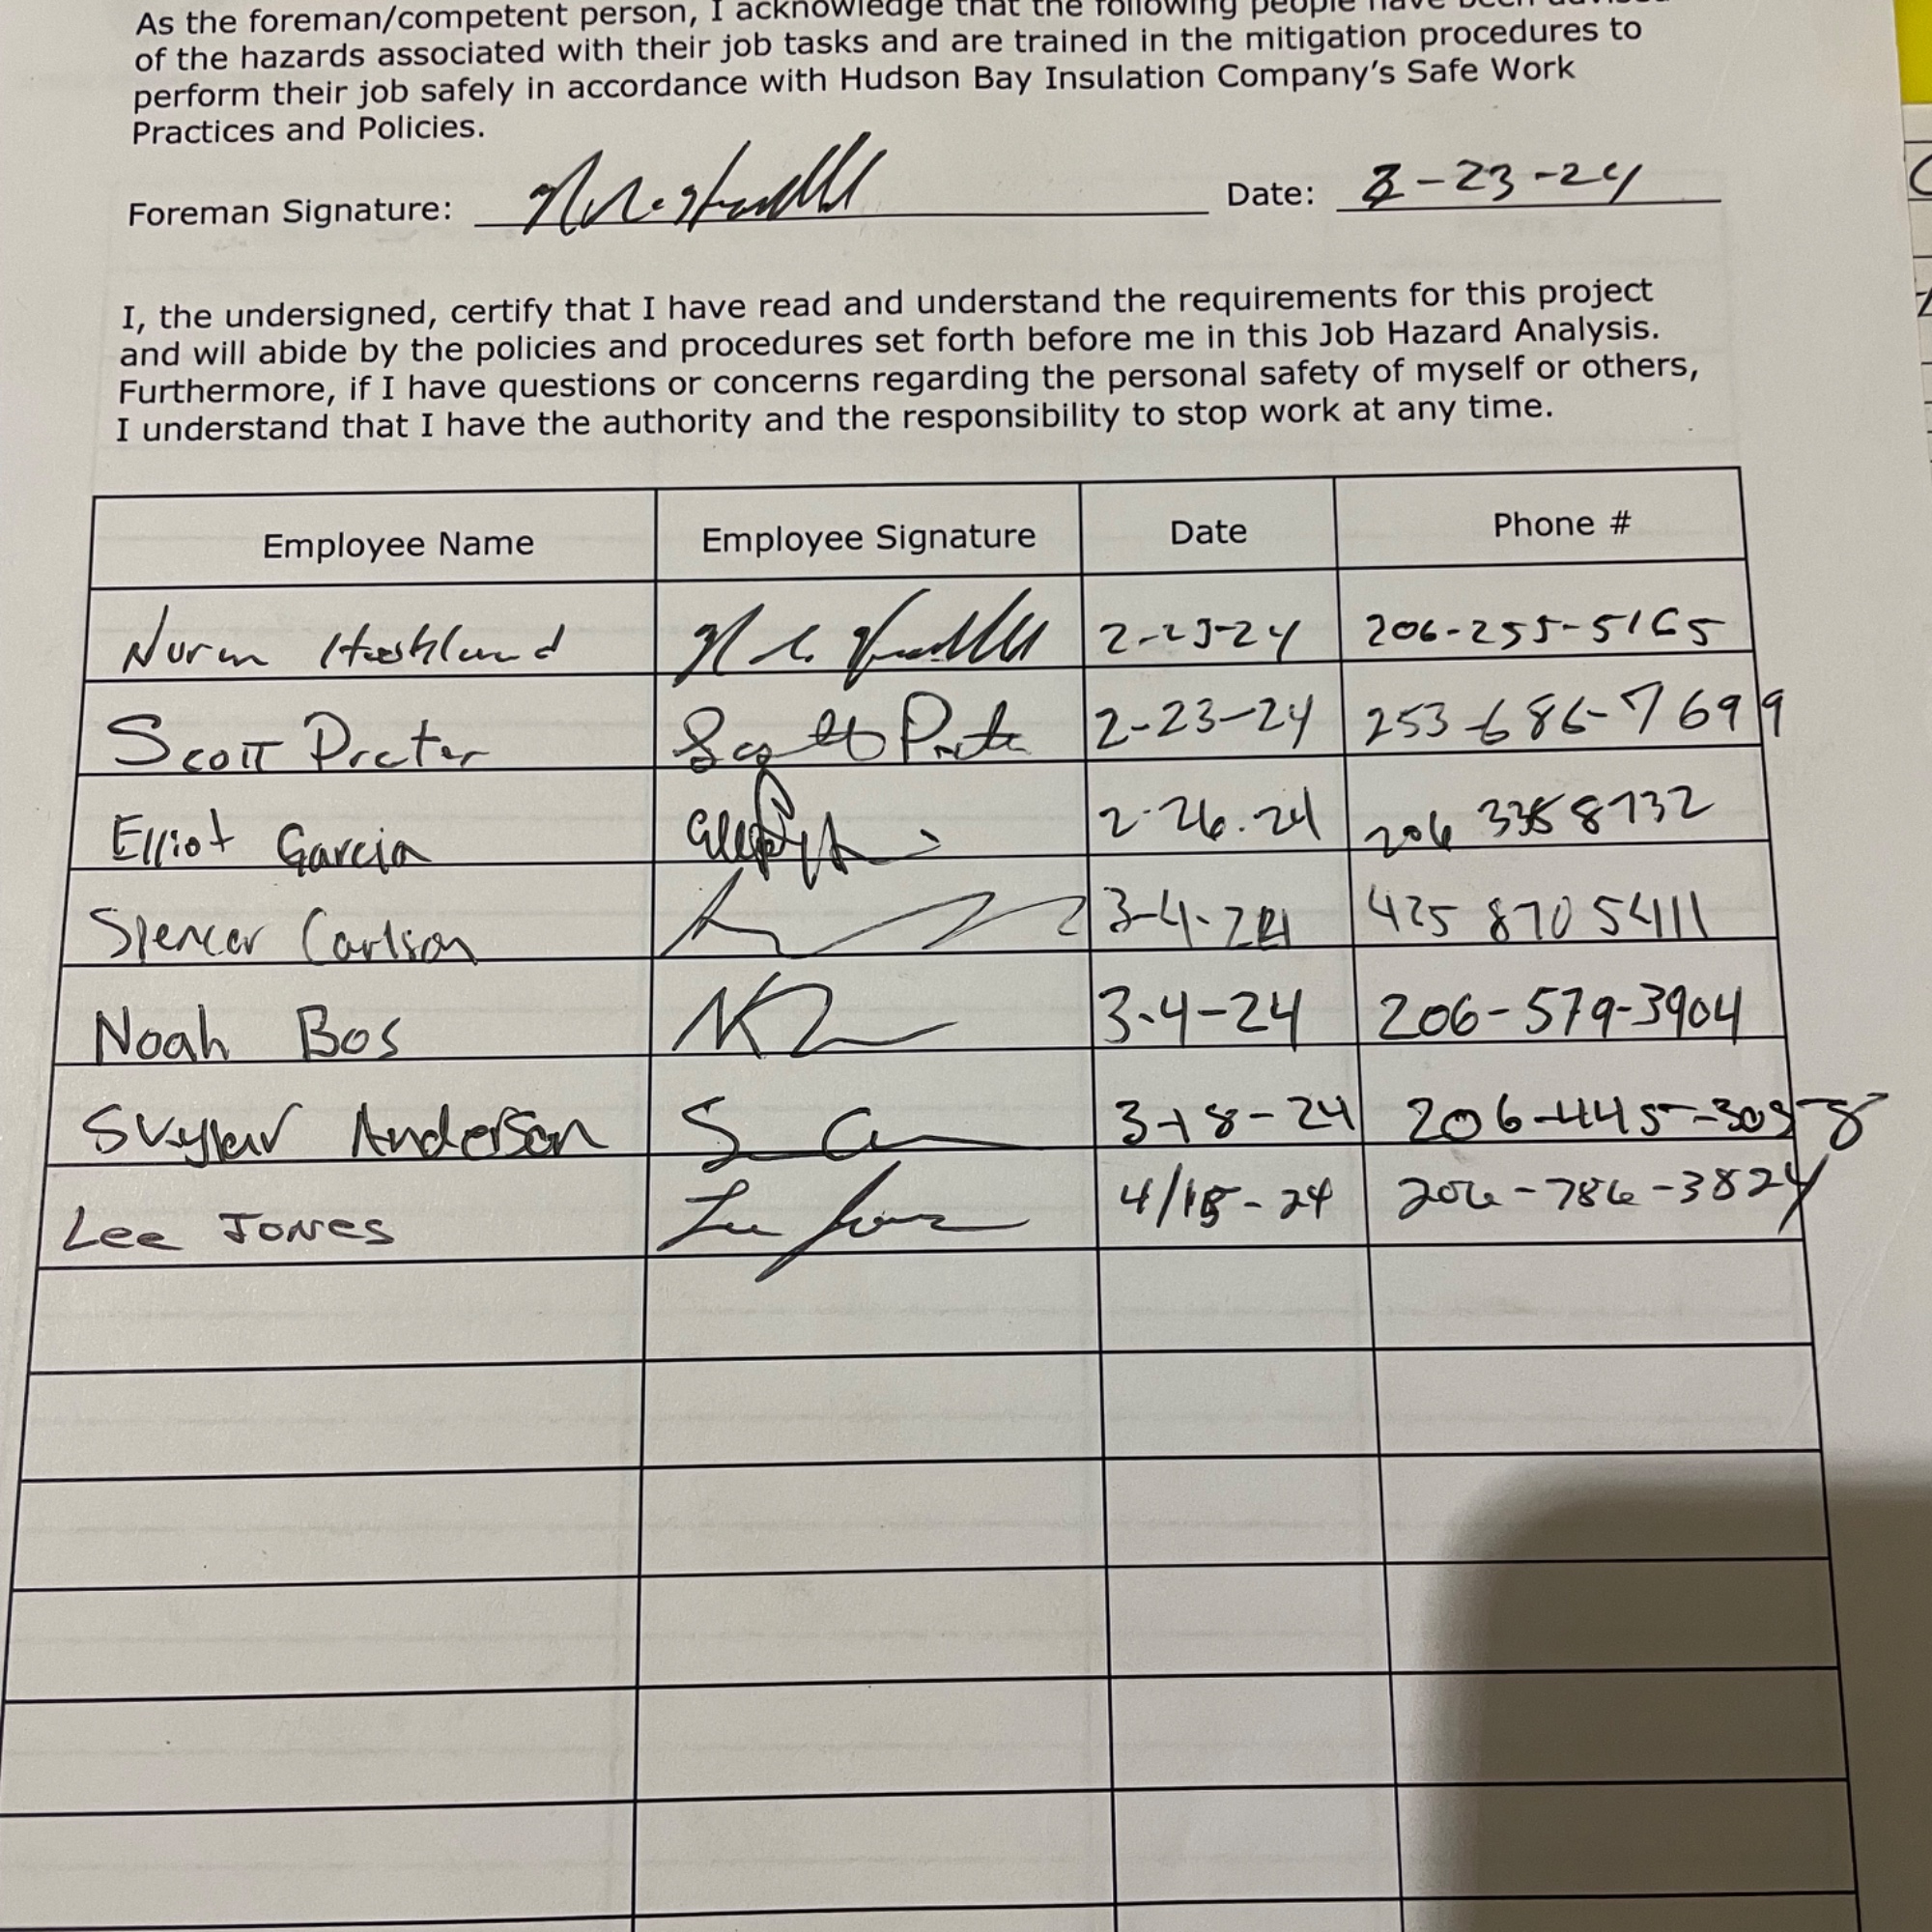 As the foreman/competent person, I acknowledge that the following people have been advised
of the hazards associated with their job tasks and are trained in the mitigation procedures to
perform their job safely in accordance with Hudson Bay Insulation Company's Safe Work
Practices and Policies.
Foreman Signature: Date: 2-23-24
I, the undersigned, certify that I have read and understand the requirements for this project
and will abide by the policies and procedures set forth before me in this Job Hazard Analysis.
Furthermore, if I have questions or concerns regarding the personal safety of myself or others,
I understand that I have the authority and the responsibility to stop work at any time.
Employee Name Employee Signature Date Phone #
Norm 2-23-24 206-255-5165
Scott Prater Scott 2-23-24 253-686-7699
Elliot Garcia 2-26.24 206
Spencer Carlson 3-4-24 425 870 5411
Noah Bos 3-4-24 206-579-3904
Skyler Anderson 3-18-24
Lee Jones Lee Jones 4/15-24 206-786-3824